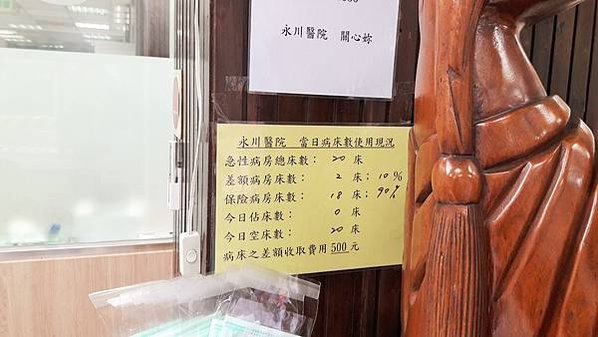 永川醫院 關心妳
永川醫院 當日病床數使用現況
急性病房總床數： 20 床
差額病房床數： 2 床； 10%
保險病房床數： 18 床； 90%
今日佔床數： 0 床
今日空床數： 20 床
病床之差額收取費用 500 元